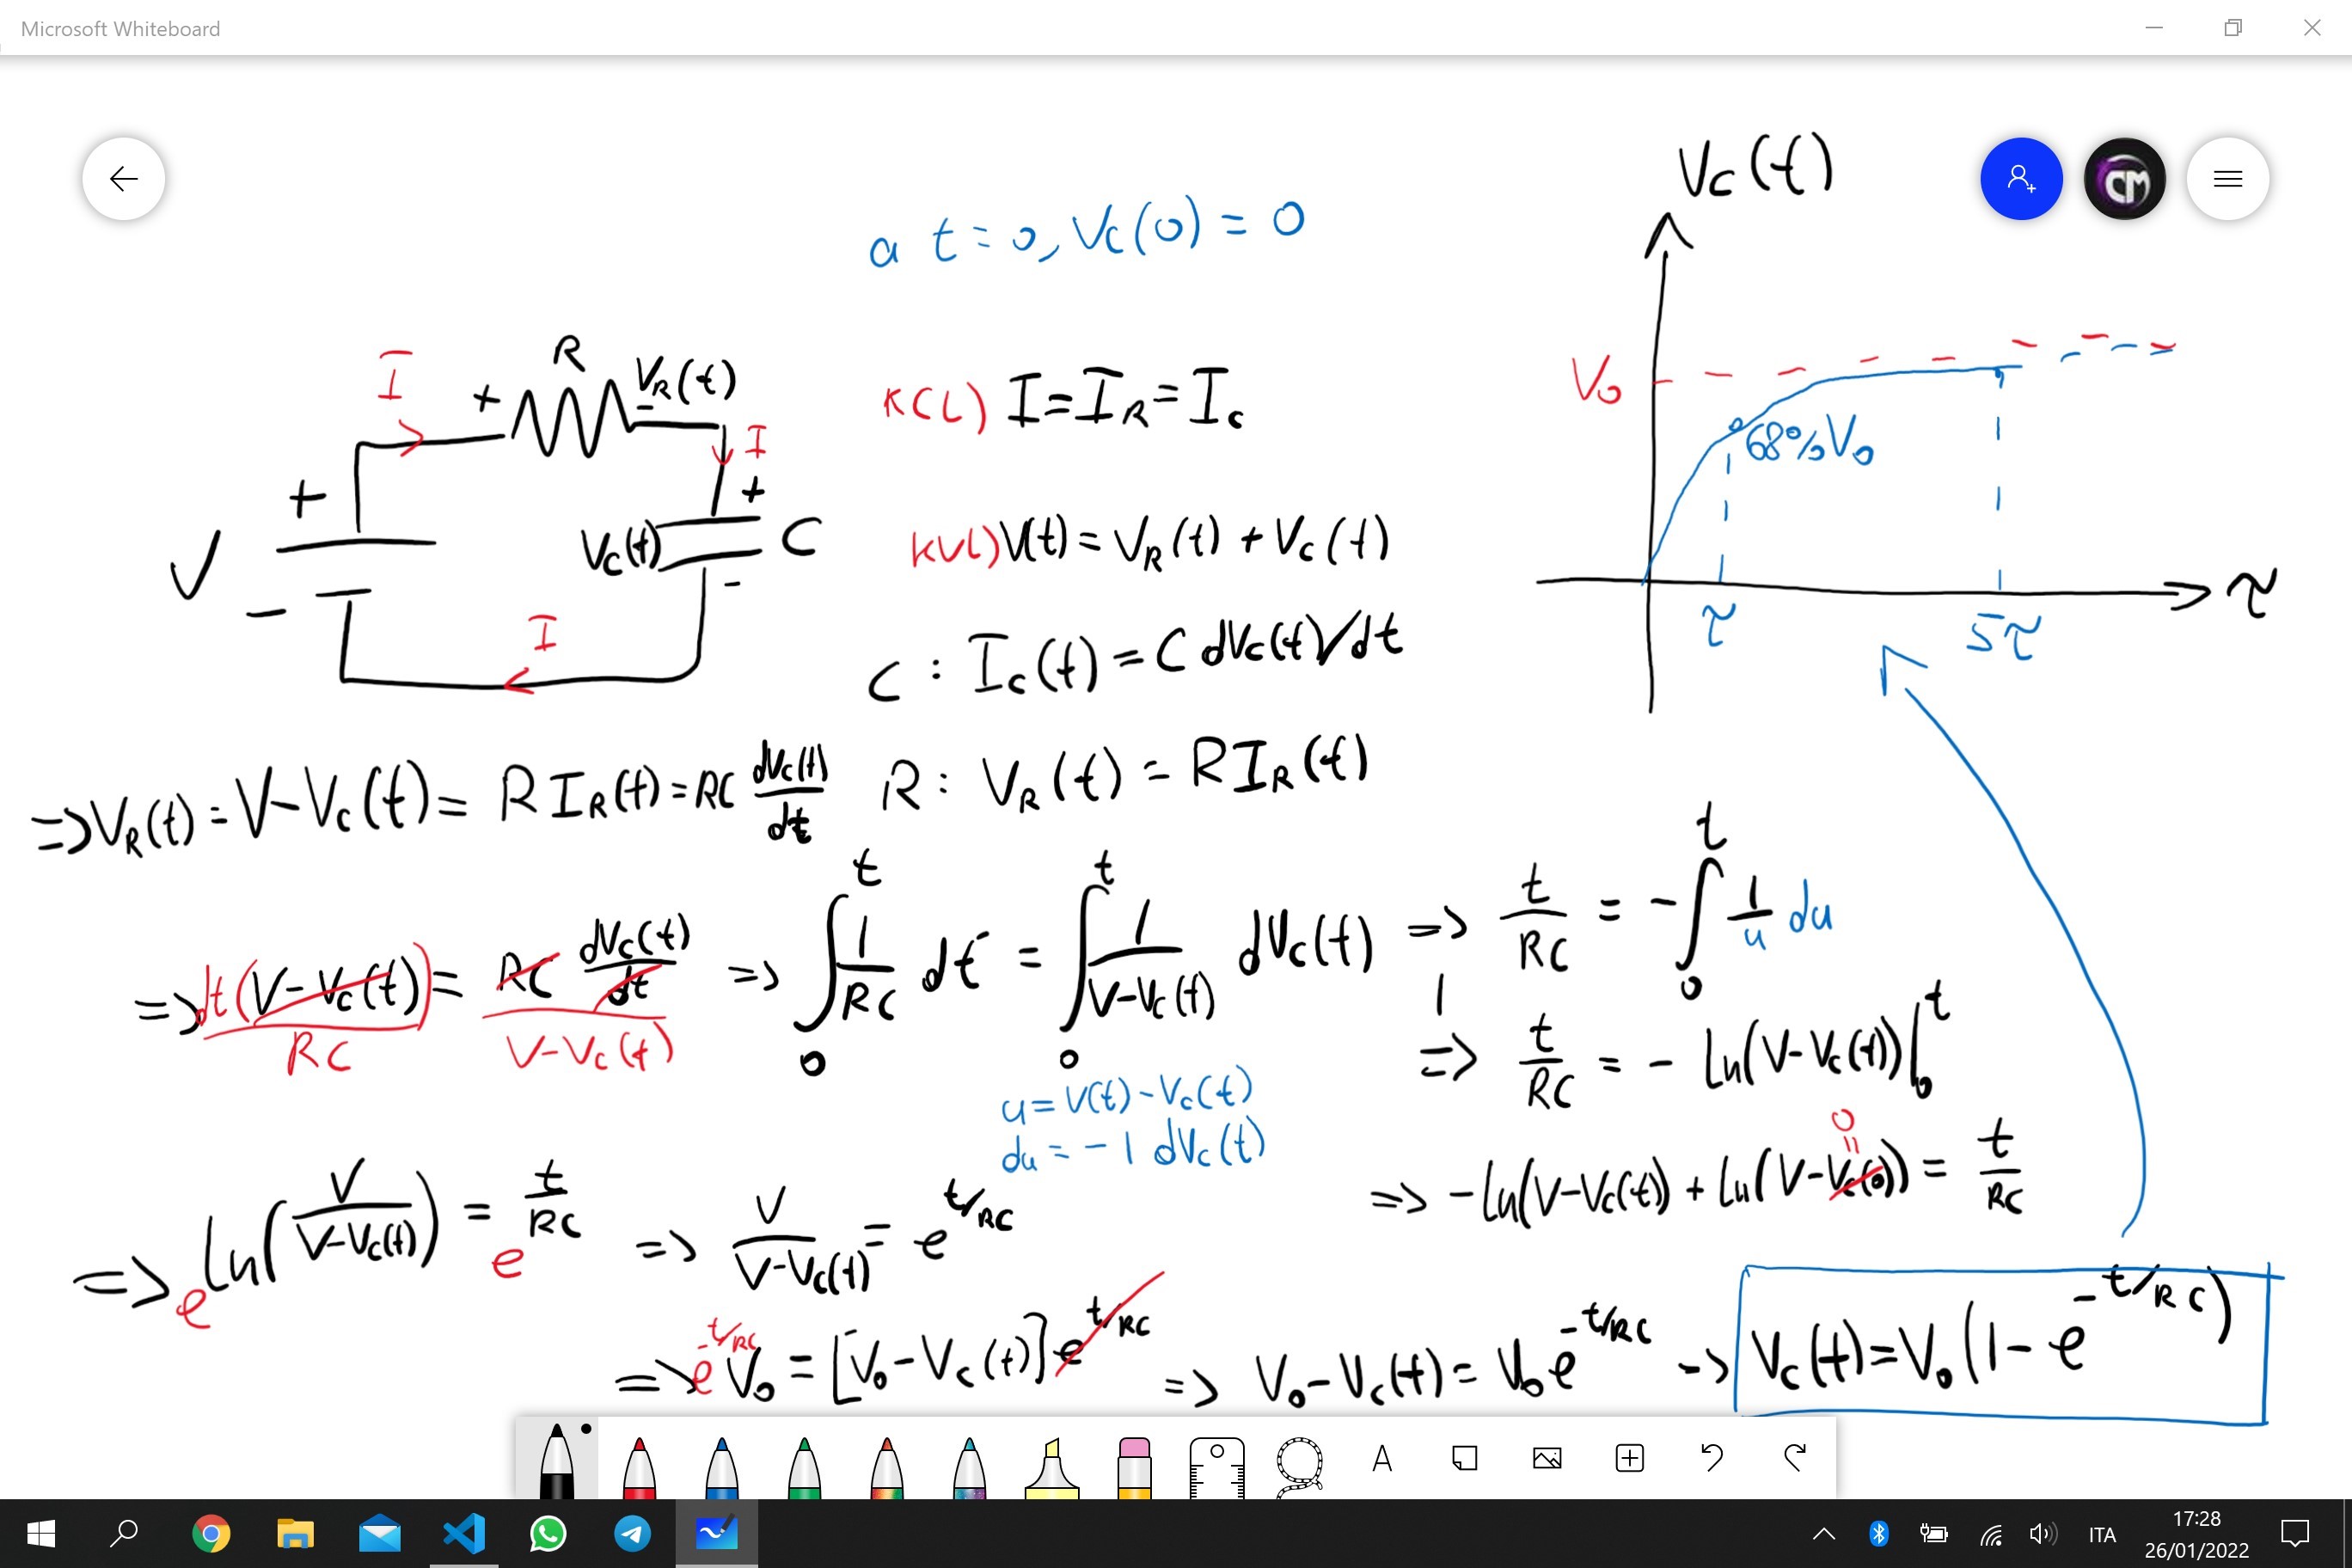 Microsoft Whiteboard
a t=0, Vc(0) = 0
Vc(t)
V₀
68% V₀
τ
5τ
τ
I
R
+
V_R(t)
-
I
+
+
V
-
Vc(t)
C
-
I
KCL) I=I_R=I_c
KVL) V(t) = V_R(t) + Vc(t)
C : I_c(t) = C dVc(t)/dt
R : V_R(t) = R I_R(t)
=> V_R(t) = V-Vc(t) = R I_R(t) = RC dVc(t)/dt
=> dt(V-Vc(t))/RC = RC dVc(t)/dt / V-Vc(t) => ∫₀ᵗ 1/RC dt = ∫₀ᵗ 1/V-Vc(t) dVc(t) => t/RC = -∫₀ᵗ 1/u du
u = V(t) - Vc(t)
du = -1 dVc(t)
=> t/RC = - ln(V-Vc(t))|₀ᵗ
0
=> -ln(V-Vc(t)) + ln(V-Vc(0)) = t/RC
=> e ln(V/V-Vc(t)) = e t/RC => V/V-Vc(t) = e^t/RC
=> e^-t/RC V₀ = [V₀-Vc(t)] e^t/RC => V₀-Vc(t) = V₀ e^-t/RC => Vc(t) = V₀(1-e^-t/RC)
A
ITA
17:28
26/01/2022
CM